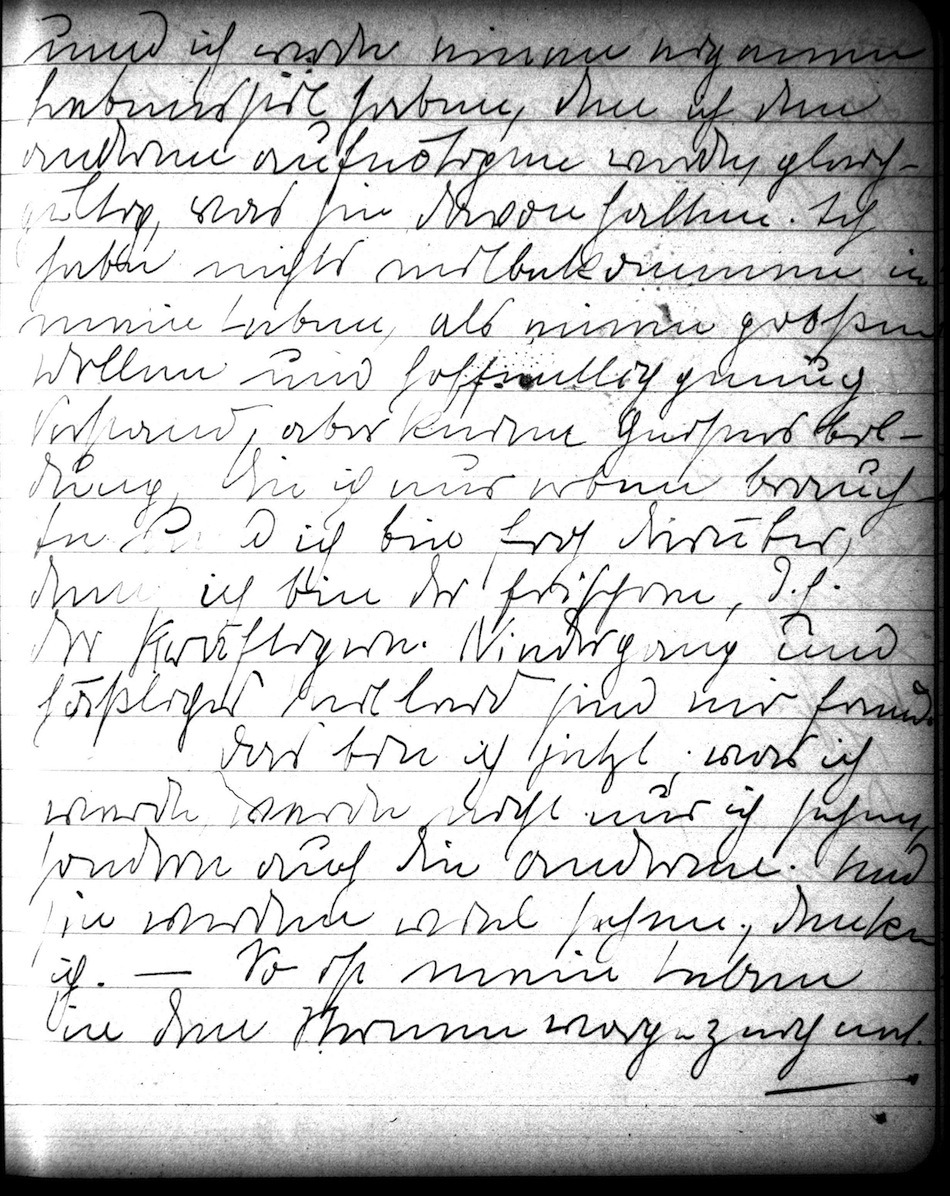 und ich werde einen eigenen
Lebensstil haben, den ich den
anderen aufnötigen werde, gleich-
gültig, was sie davon halten. Ich
habe nichts mitbekommen in
mein Leben, als einen großen
Willen und hoffentlich genug
Verstand, aber keine Geistesbil-
dung, die ich nur eben brauch-
te. Und ich bin froh darüber,
denn ich bin der frischere, d.h.
der Kräftigere. Niedergang und
häßliches Mitleid sind mir fremd.
Das bin ich jetzt, was ich
werde, werde nicht nur ich sehen,
sondern auch die anderen. Und
sie werden viel sehen, denke
ich. — So ist mein Leben
in den Sternen vorgezeichnet.